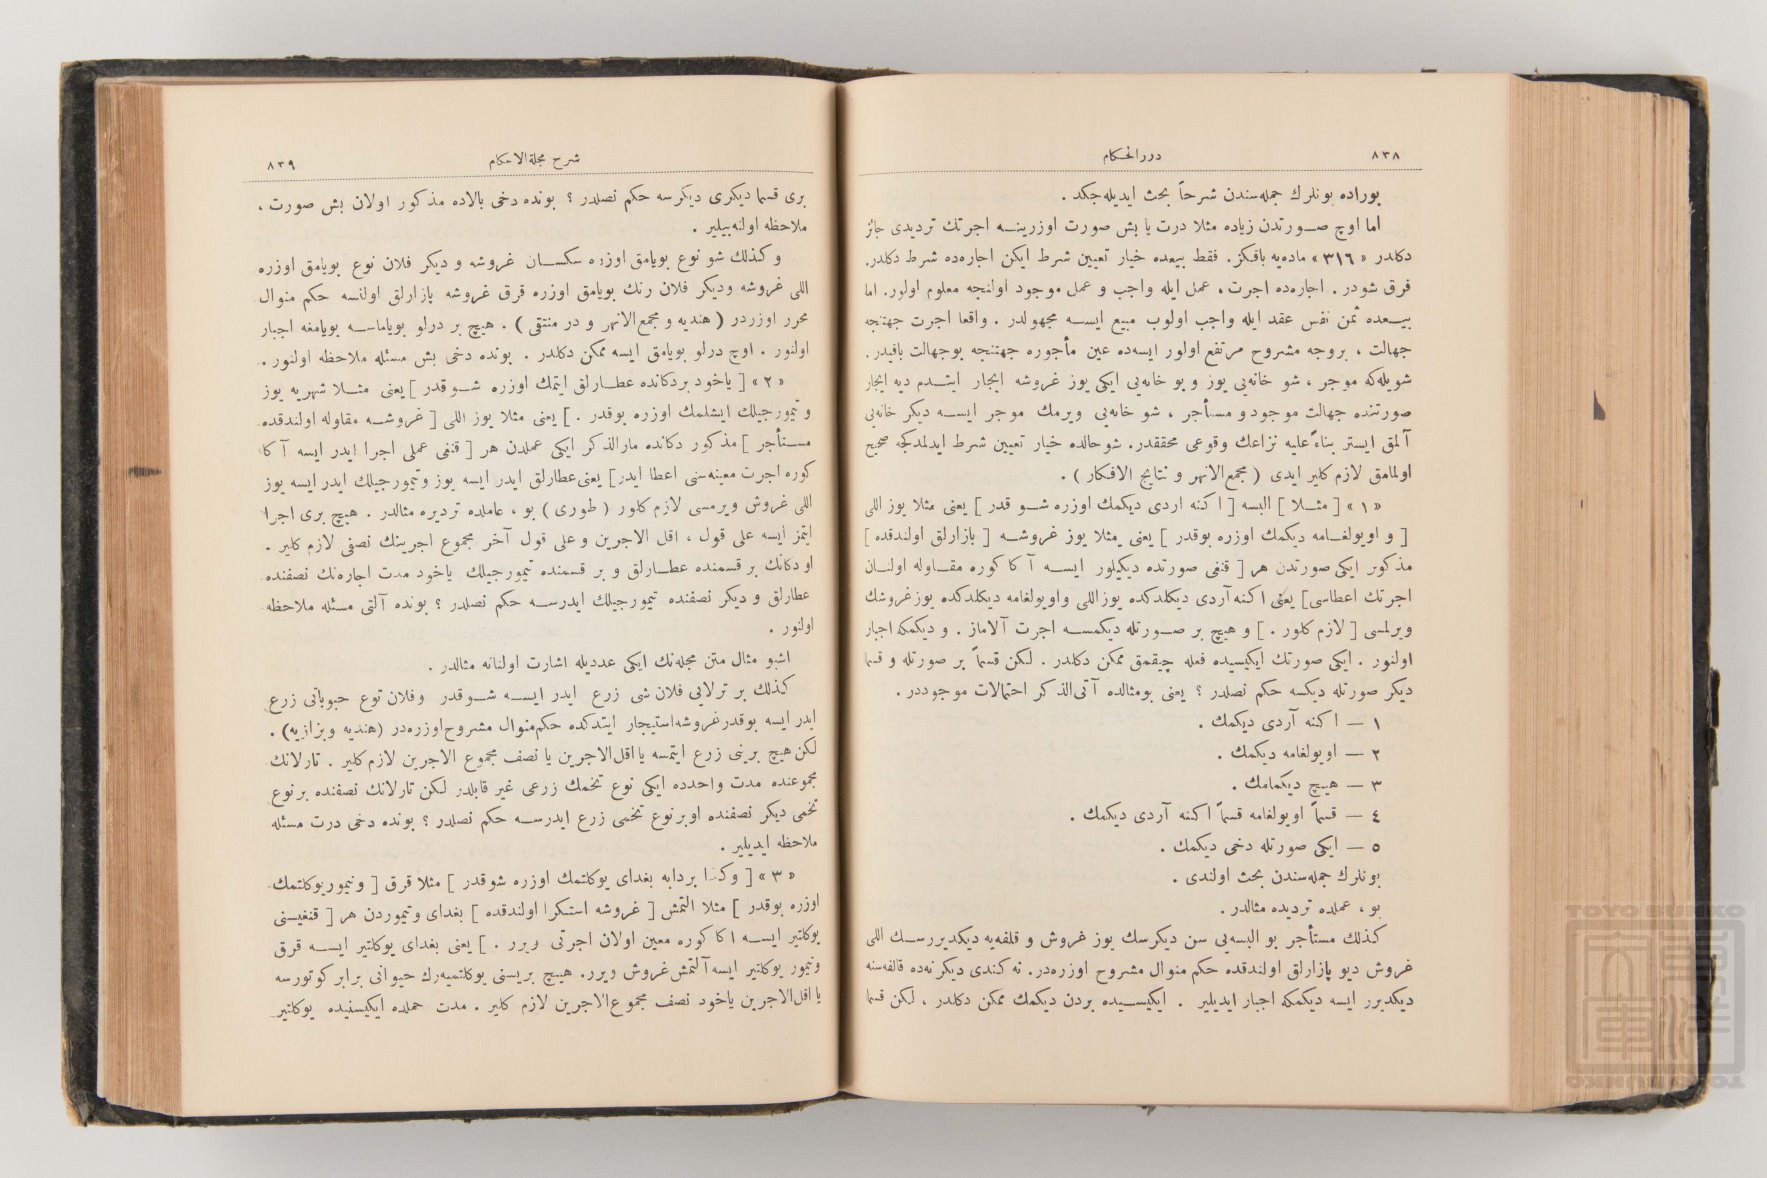 ٨٣٨
دررالحكام
بوراده بونلرك جمله‌سندن شرحاً بحث ایدیله‌جكد .
اما اوچ صورتدن زیاده مثلا درت یا بش صورت اوزرینه اجرتك تردیدی جائز
دكلدر «٣١٦» ماده‌یه باقیكز. فقط بیعده خیار تعیین شرط ایكن اجاره‌ده شرط دكلدر.
فرق شودر . اجاره‌ده اجرت ، عمل ایله واجب و عمل موجود اولنجه معلوم اولور. اما
بیعده ثمن نفس عقد ایله واجب اولوب مبیع ایسه مجهولدر . واقعا اجرت جهتنجه
جهالت ، بروجه مشروح مرتفع اولور ایسه‌ده عین مأجوره جهتنجه بوجهالت باقیدر.
شویله‌كه موجر ، شو خانه‌یی یوز و بو خانه‌یی ایكی یوز غروشه ایجار ایتدم دیه ایجار
صورتنده جهالت موجود و مستأجر ، شو خانه‌یی ویرمك موجر ایسه دیكر خانه‌یی
آلمق ایستر بناءً علیه نزاعك وقوعی محققدر. شوحالده خیار تعیین شرط ایدلمدكجه صحیح
اولمامق لازم كلیر ایدی ( مجمع‌الانهر و نتایج الافكار ) .
«١» [ مثلا ] البسه [ ا كنه اردی دیكمك اوزره شو قدر ] یعنی مثلا یوز اللی
[ و اویولغامه دیكمك اوزره بوقدر ] یعنی مثلا یوز غروشه [ بازارلق اولندقده ]
مذكور ایكی صورتدن هر [ قنغی صورتده دیكیلور ایسه آ كا كوره مقاوله اولنان
اجرتك اعطاسی] یعنی ا كنه آردی دیكلدكده یوزاللی واویولغامه دیكلدكده یوز غروشك
ویرلمسی [ لازم كلور . ] و هیچ بر صورتله دیكمسه اجرت آلاماز . و دیكمكه اجبار
اولنور . ایكی صورتك ایكیسیده فعله چیقمق ممكن دكلدر . لكن قسماً بر صورتله و قسما
دیكر صورتله دیكسه حكم نصلدر ؟ یعنی بومثالده آتی‌الذكر احتمالات موجوددر .
١ — ا كنه آردی دیكمك .
٢ — اویولغامه دیكمك .
٣ — هیچ دیكمامك .
٤ — قسماً اویولغامه قسماً ا كنه آردی دیكمك .
٥ — ایكی صورتله دخی دیكمك .
بونلرك جمله‌سندن بحث اولندی .
بو ، عملده تردیده مثالدر .
كذلك مستأجر بو البسه‌یی سن دیكرسك یوز غروش و قلفه‌یه دیكدیررسك اللی
غروش دیو پازارلق اولندقده حكم منوال مشروح اوزره‌در. نه كندی دیكر نه‌ده قالفه‌سنه
دیكدیرر ایسه دیكمكه اجبار ایدیلیر . ایكیسیده بردن دیكمك ممكن دكلدر ، لكن قسما
شرح مجلةالاحكام
٨٣٩
بری قسما دیكری دیكرسه حكم نصلدر ؟ بونده دخی بالاده مذكور اولان بش صورت ،
ملاحظه اولنه‌بیلیر .
و كذلك شو نوع بویامق اوزره سكسان غروشه و دیكر فلان نوع بویامق اوزره
اللی غروشه ودیكر فلان رنك بویامق اوزره قرق غروشه بازارلق اولنسه حكم منوال
محرر اوزردر ( هندیه و مجمع‌الانهر و در منتقی ) . هیچ بر درلو بویاماسه بویامغه اجبار
اولنور . اوچ درلو بویامق ایسه ممكن دكلدر . بونده دخی بش مسئله ملاحظه اولنور .
«٢» [ یاخود بردكانده عطارلق ایتمك اوزره شوقدر ] یعنی مثلا شهریه یوز
و تیمورجیلك ایشلمك اوزره بوقدر . ] یعنی مثلا یوز اللی [ غروشه مقاوله اولندقده
مستأجر ] مذكور دكانده مارالذكر ایكی عملدن هر [ قنغی عملی اجرا ایدر ایسه آ كا
كوره اجرت معینه‌سنی اعطا ایدر] یعنی عطارلق ایدر ایسه یوز وتیمورجیلك ایدر ایسه یوز
اللی غروش ویرمسی لازم كلور ( طوری ) بو ، عاملده تردیره مثالدر . هیچ بری اجرا
ایتمز ایسه علی قول ، اقل الاجرین و علی قول آخر مجموع اجرینك نصفی لازم كلیر .
او دكانك بر قسمنده عطارلق و بر قسمنده تیمورجیلك یاخود مدت اجاره‌نك نصفنده
عطارلق و دیكر نصفنده تیمورجیلك ایدرسه حكم نصلدر ؟ بونده آلتی مسئله ملاحظه
اولنور .
اشبو مثال متن مجله‌نك ایكی عددیله اشارت اولنانه مثالدر .
كذلك بر ترلایی فلان شی زرع ایدر ایسه شوقدر وفلان نوع حبوباتی زرع
ایدر ایسه بوقدر غروشه‌استیجار ایتدكده حكم‌منوال مشروح‌اوزره‌در (هندیه وبزازیه) .
لكن هیچ برینی زرع ایتمسه یا اقل‌الاجرین یا نصف مجموع الاجرین لازم كلیر . تارلانك
مجموعنده مدت واحدده ایكی نوع تخمك زرعی غیر قابلدر لكن تارلانك نصفنده برنوع
تخمی دیكر نصفنده اوبر نوع تخمی زرع ایدرسه حكم نصلدر ؟ بونده دخی درت مسئله
ملاحظه ایدیلیر .
«٣» [ وكذا بردابه بغدای یوكلتمك اوزره شوقدر ] مثلا قرق [ وتیموریوكلتمك
اوزره بوقدر ] مثلا التمش [ غروشه استكرا اولندقده ] بغدای وتیموردن هر [ قنغیسنی
یوكلتیر ایسه ا كا كوره معین اولان اجرتی ویرر . ] یعنی بغدای یوكلتیر ایسه قرق
وتیمور یوكلتیر ایسه آلتمش غروش ویرر. هیچ بریسنی یوكلتمیه‌رك حیوانی برابر كوتورسه
یا اقل‌الاجرین یاخود نصف مجموع‌الاجرین لازم كلیر . مدت حملده ایكیسنیده یوكلتیر
TOYO BUNKO
東洋文庫
TOYO BUNKO